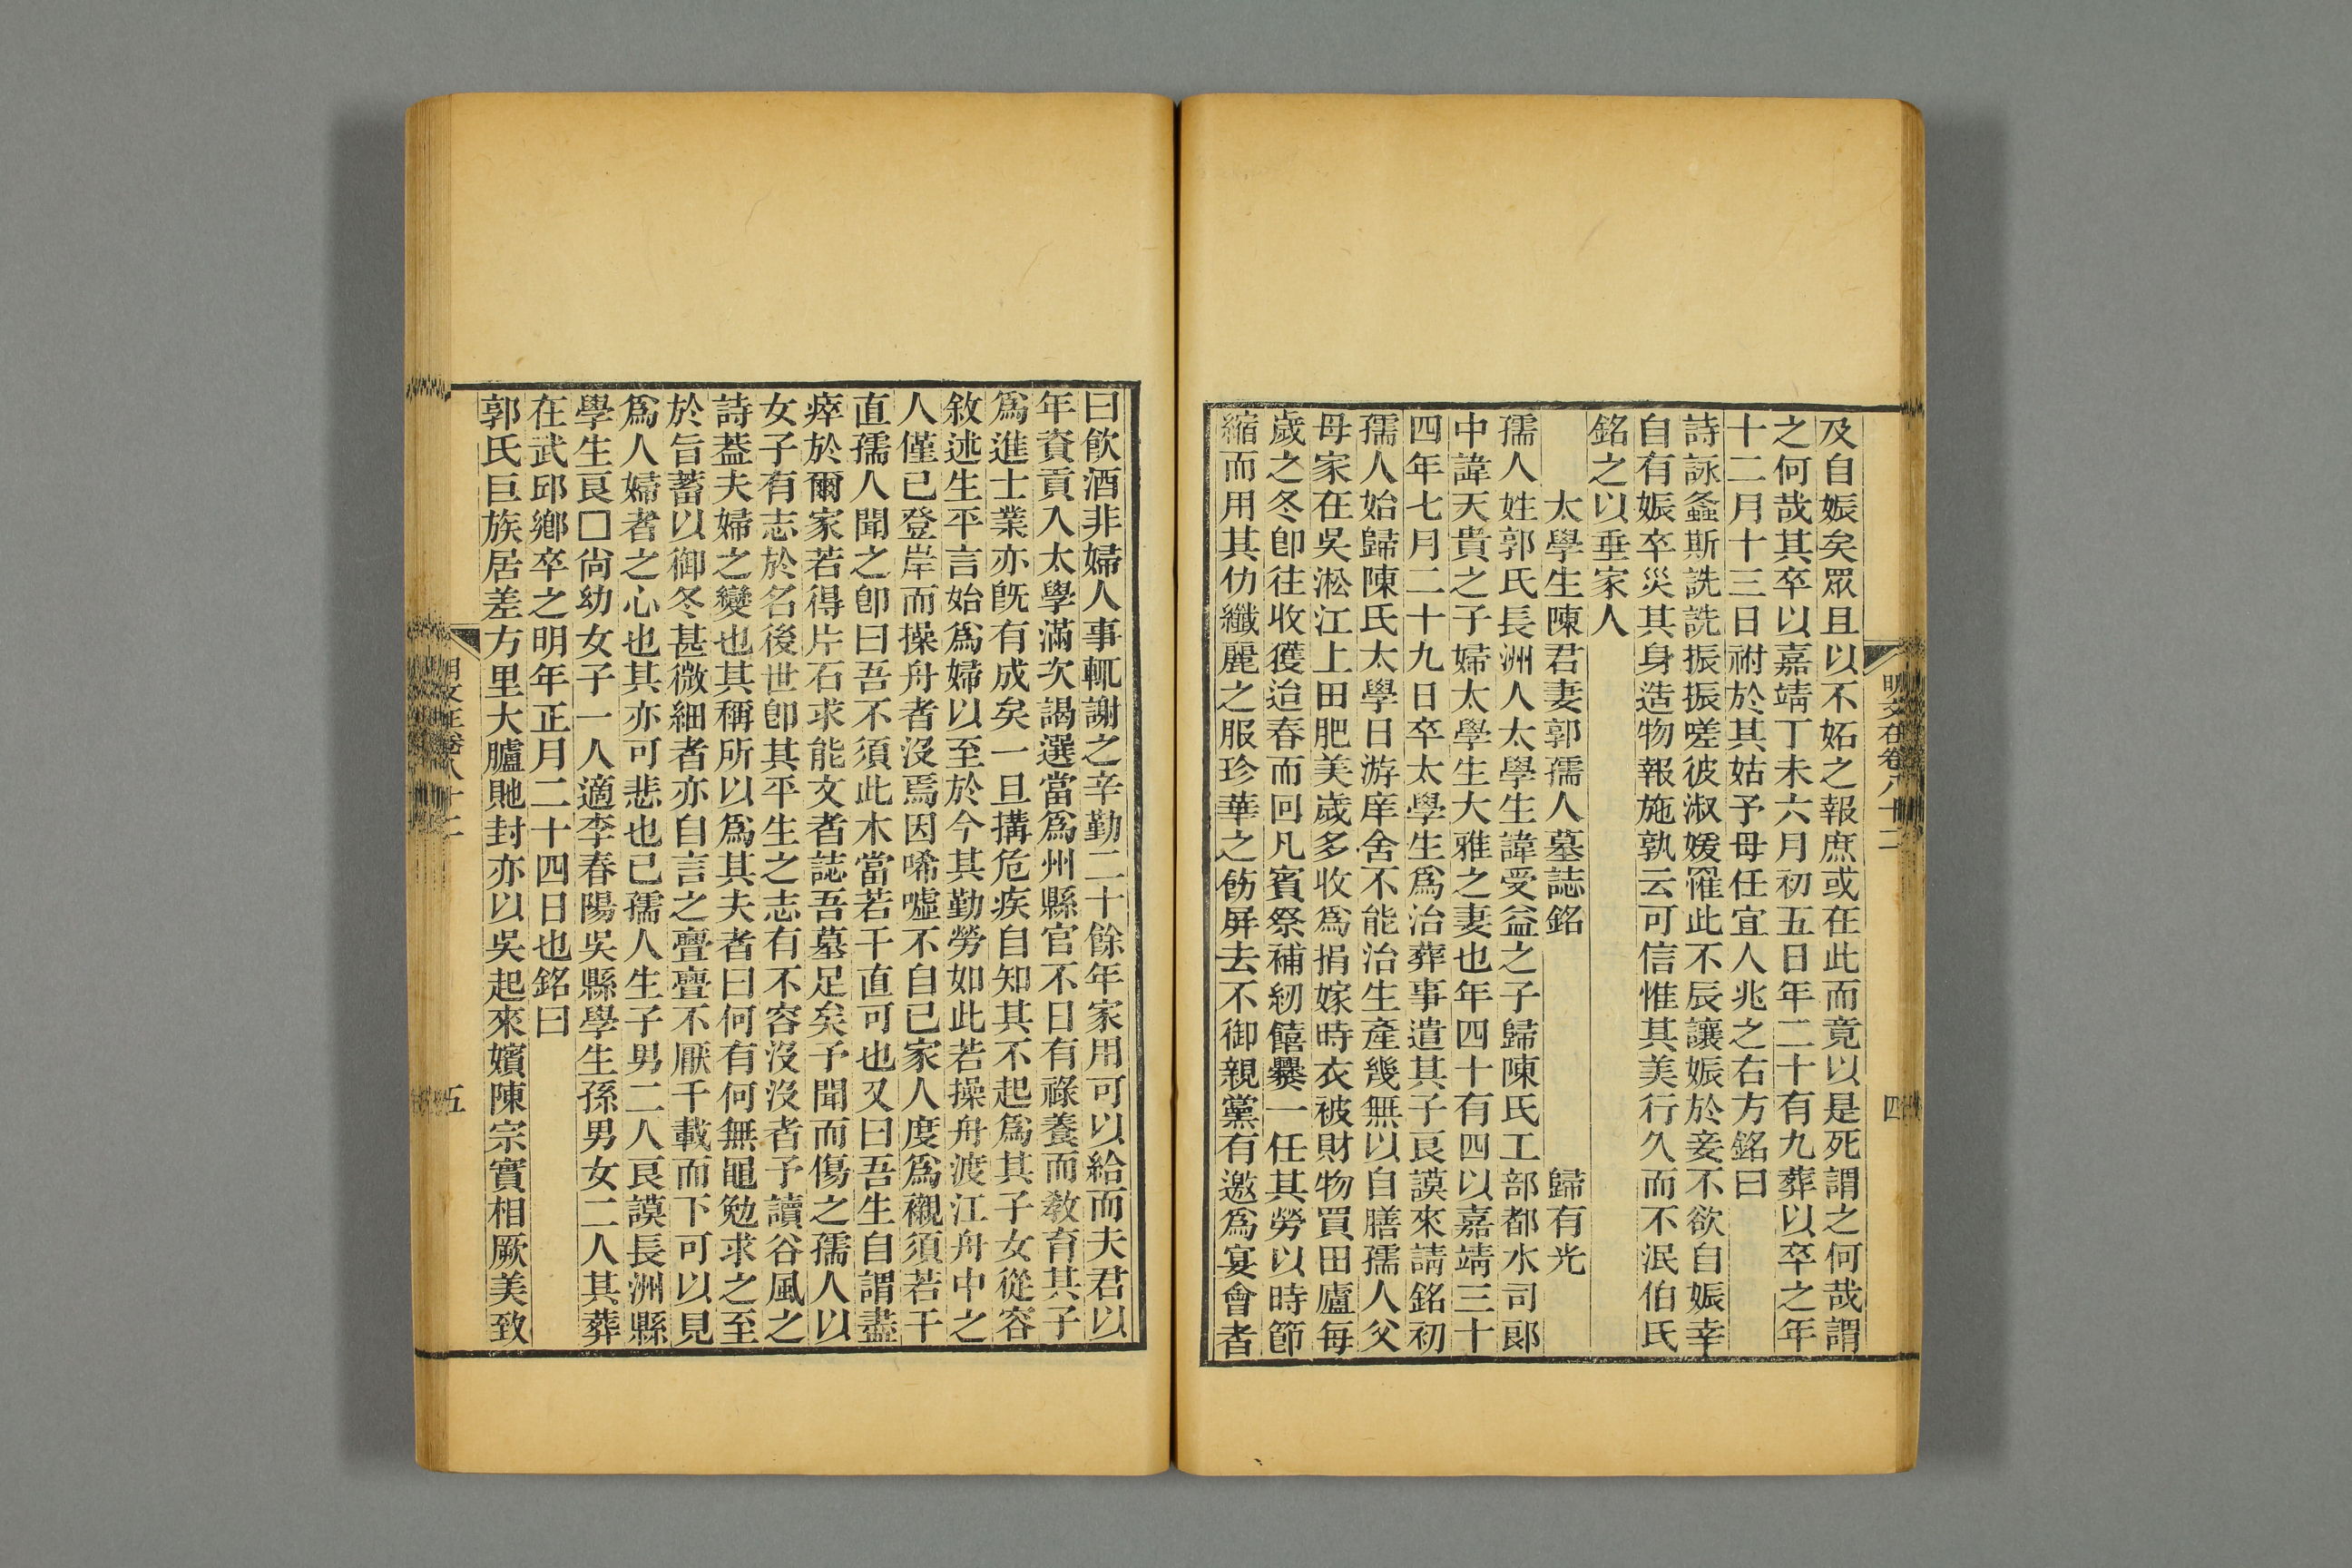 明文在卷八十二
四
及自娠矣眾且以不妬之報庶或在此而竟以是死謂之何哉謂
之何哉其卒以嘉靖丁未六月初五日年二十有九葬以卒之年
十二月十三日祔於其姑予母任宜人兆之右方銘曰
詩詠螽斯詵詵振振嗟彼淑媛罹此不辰讓娠於妾不欲自娠幸
自有娠卒災其身造物報施孰云可信惟其美行久而不泯伯氏
銘之以垂家人
太學生陳君妻郭孺人墓誌銘　歸有光
孺人姓郭氏長洲人太學生諱受益之子歸陳氏工部都水司郎
中諱天貴之子婦太學生大雅之妻也年四十有四以嘉靖三十
四年七月二十九日卒太學生爲治葬事遣其子艮謨來請銘初
孺人始歸陳氏太學日游庠舍不能治生產幾無以自膳孺人父
母家在吳淞江上田肥美歲多收爲捐嫁時衣被財物買田廬每
歲之冬卽往收獲迨春而回凡賓祭補紉饎爨一任其勞以時節
縮而用其仂纖麗之服珍華之飭屏去不御親黨有邀爲宴會者
曰飲酒非婦人事輒謝之辛勤二十餘年家用可以給而夫君以
年資貢入太學滿次謁選當爲州縣官不日有祿養而教育其子
爲進士業亦既有成矣一旦搆危疾自知其不起爲其子女從容
敘述生平言始爲婦以至於今其勤勞如此若操舟渡江舟中之
人僅已登岸而操舟者沒焉因唏噓不自已家人度爲櫬須若干
直孺人聞之卽曰吾不須此木當若干直可也又曰吾生自謂盡
瘁於爾家若得片石求能文者誌吾墓足矣予聞而傷之孺人以
女子有志於名後世卽其平生之志有不容沒沒者予讀谷風之
詩葢夫婦之變也其稱所以爲其夫者曰何有何無黽勉求之至
於旨蓄以御冬甚微細者亦自言之亹亹不厭千載而下可以見
爲人婦者之心也其亦可悲也已孺人生子男二人艮謨長洲縣
學生艮□尙幼女子一人適李春陽吳縣學生孫男女二人其葬
在武邱鄉卒之明年正月二十四日也銘曰
郭氏巨族居差方里大臚貤封亦以吳起來嬪陳宗實相厥美致
明文在卷八十二
五